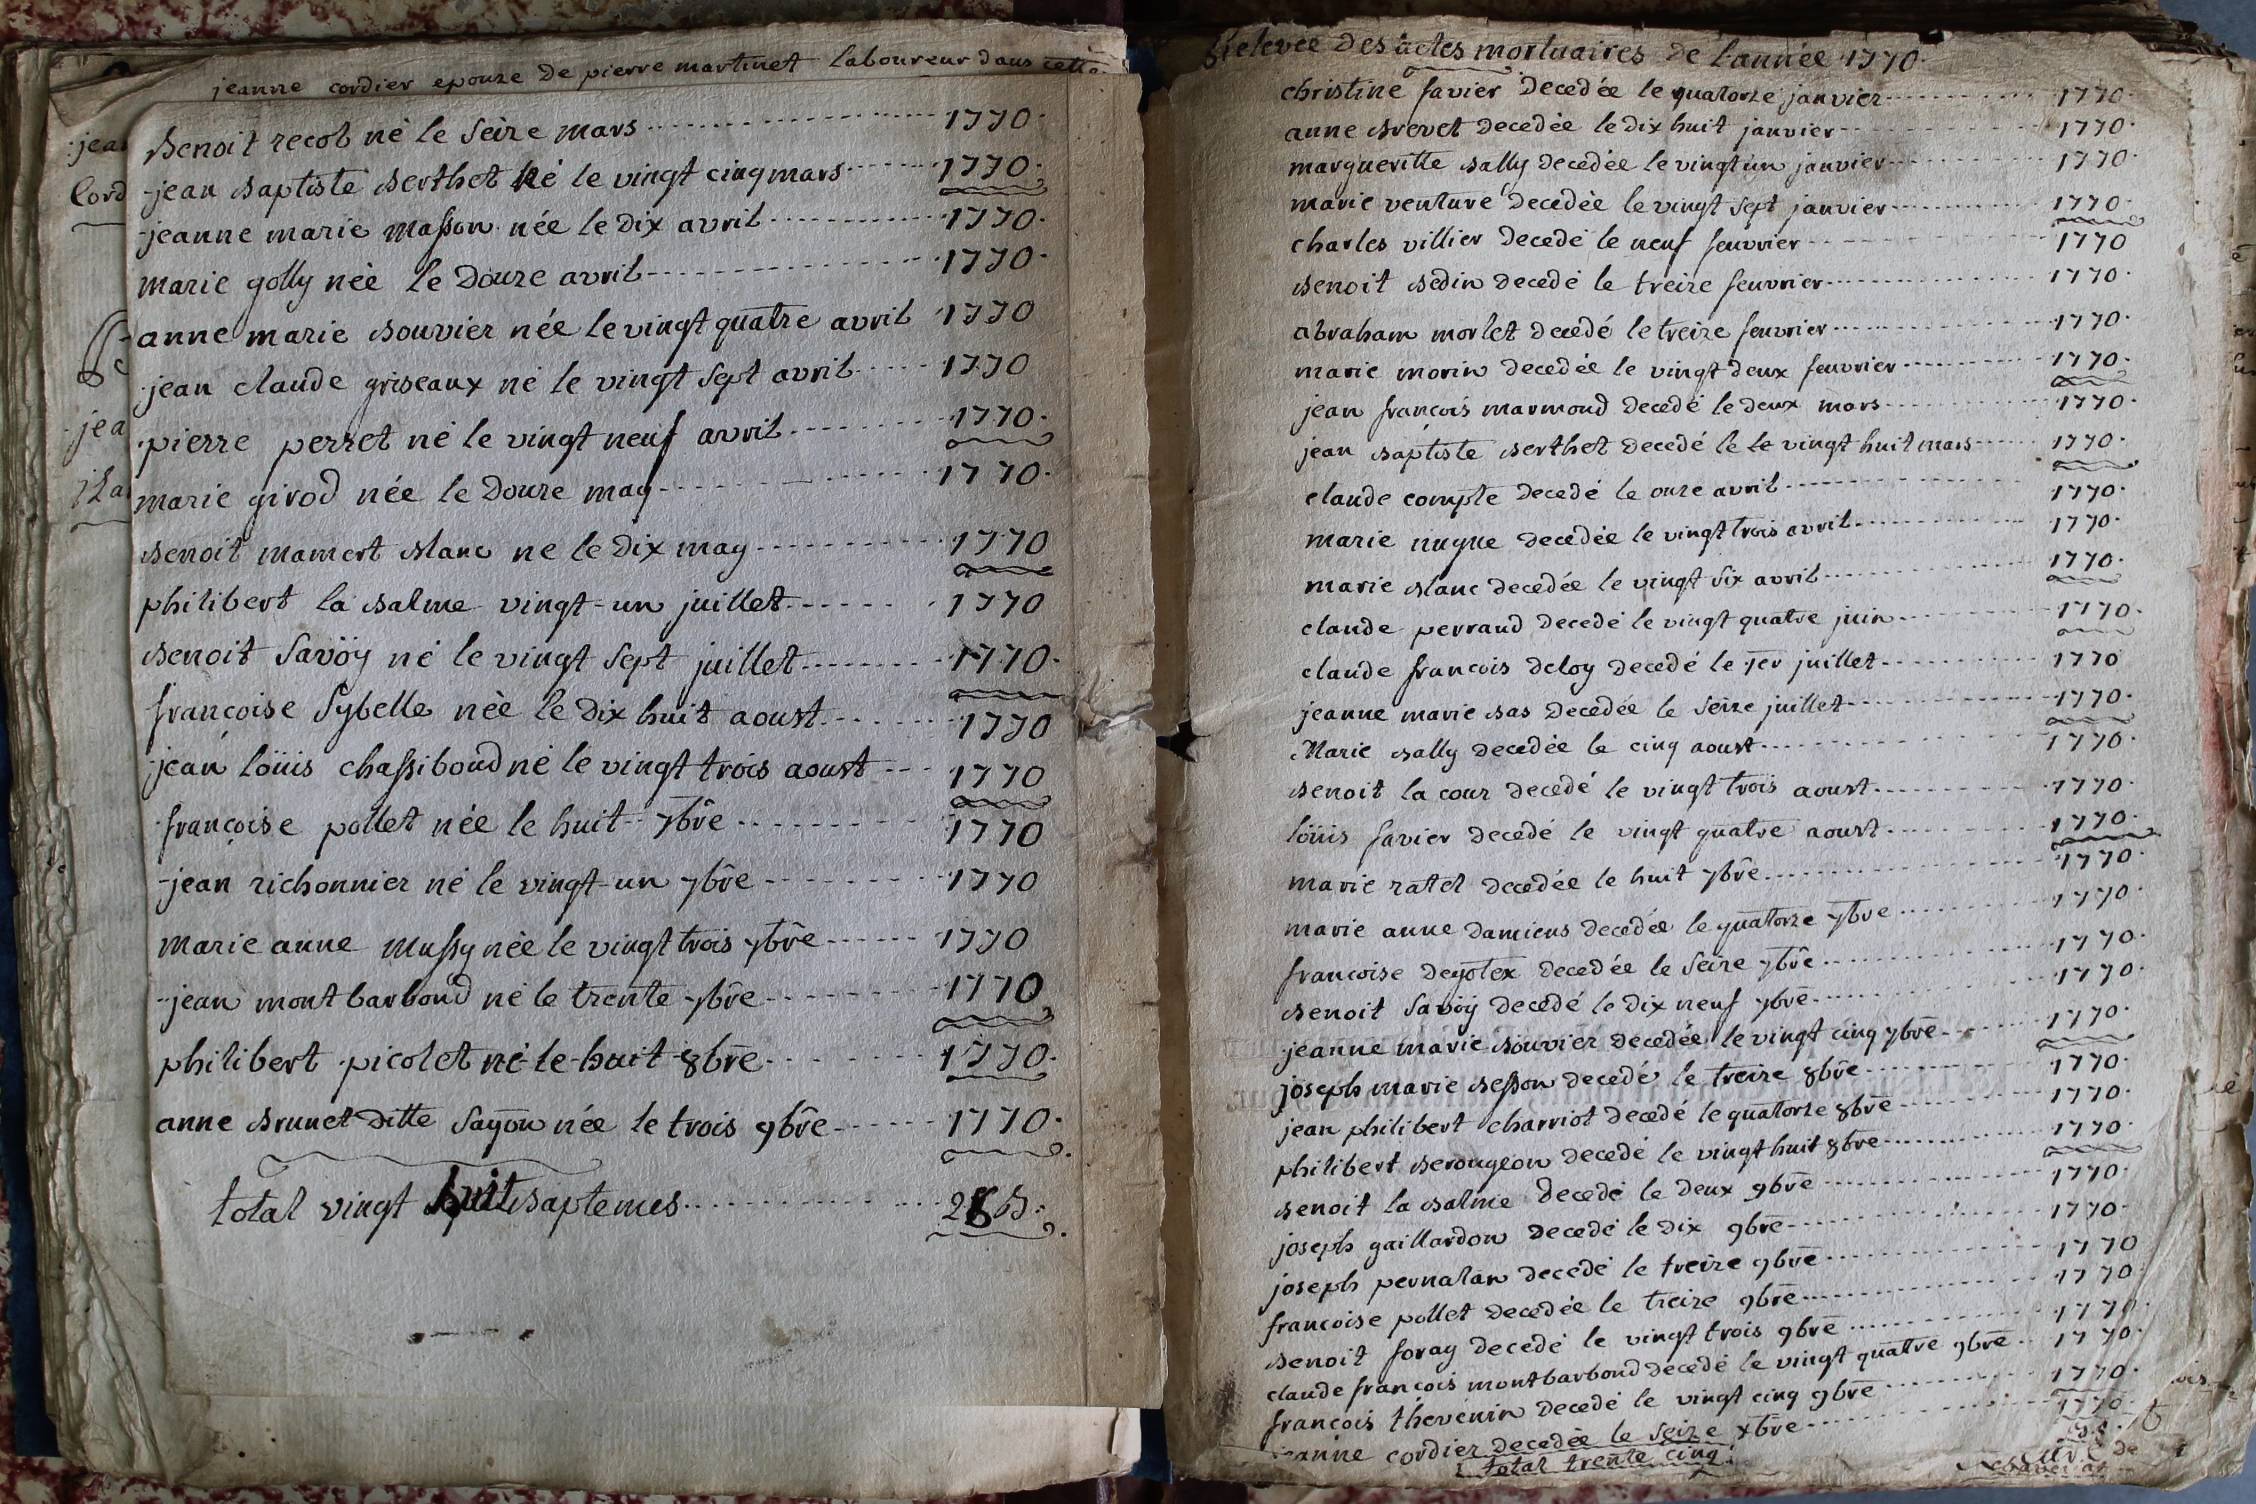 jeanne cordier epouze de pierre martinet laboureur dans cette
Benoit recob né le seize mars 1770
jean Baptiste Berthet né le vingt cinq mars 1770
jeanne marie masson née le dix avril 1770
marie golly née le douze avril 1770
anne marie Bouvier née le vingt quatre avril 1770
jean claude griseaux né le vingt sept avril 1770
pierre perret né le vingt neuf avril 1770
marie girod née le douze may 1770
Benoit mamert Blanc ne le dix may 1770
philibert la Balme vingt-un juillet 1770
Benoit Savöy né le vingt sept juillet 1770
françoise Sybelle née le dix huit aoust 1770
jean löuis chassiboud né le vingt trois aoust 1770
françoise pollet née le huit 7bre 1770
jean richonnier né le vingt-un 7bre 1770
marie anne mussy née le vingt trois 7bre 1770
jean montbarboud né le trente 7bre 1770
philibert picolet né le huit 8bre 1770
anne Brunet ditte Sayon née le trois 9bre 1770
total vingt huit Baptemes 28 B.
jea
cord
jea
Relevée des actes mortuaires de l'année 1770
christine favier decedée le quatorze janvier 1770
anne Brevet decedée le dix huit janvier 1770
margueritte Bally decedée le vingt un janvier 1770
marie venture decedée le vingt sept janvier 1770
charles villier decedé le neuf feuvrier 1770
Benoit Bedin decedé le treize feuvrier 1770
abraham morlet decedé le treize feuvrier 1770
marie morin decedée le vingt deux feuvrier 1770
jean françois marmond decedé le deux mars 1770
jean Baptiste Berthet decedé le le vingt huit mars 1770
claude compte decedé le onze avril 1770
marie nugue decedée le vingt trois avril 1770
marie Blanc decedée le vingt six avril 1770
claude perraud decedé le vingt quatre juin 1770
claude françois deloy decedé le 1er juillet 1770
jeanne marie Bas decedée le seize juillet 1770
Marie Bally decedée le cinq aoust 1770
Benoit la cour decedé le vingt trois aoust 1770
löuis favier decedé le vingt quatre aoust 1770
marie ratel decedée le huit 7bre 1770
marie anne damiens decedée le quatorze 7bre 1770
francoise degotex decedée le seize 7bre 1770
Benoit Savöy decedé le dix neuf 7bre 1770
jeanne marie Bouvier decedée le vingt cinq 7bre 1770
joseph marie Besson decedé le treize 8bre 1770
jean philibert charriot decedé le quatorze 8bre 1770
philibert Berougeon decedé le vingt huit 8bre 1770
Benoit la Balme decedé le deux 9bre 1770
joseph gaillardon decedé le dix 9bre 1770
joseph pernatan decedé le treize 9bre 1770
francoise pollet decedée le treize 9bre 1770
Benoit foray decedé le vingt trois 9bre 1770
claude françois montbarboud decedé le vingt quatre 9bre 1770
françois thevenin decedé le vingt cinq 9bre 1770
jeanne cordier decedée le seize xbre 1770
total trente cinq